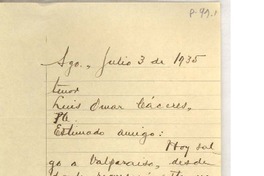 P-99.1
Ago., Julio 3 de 1935
Señor
Luis Omar Cáceres,
Pte.
Estimado amigo:
Hoy sal
go a Valparaíso, desde